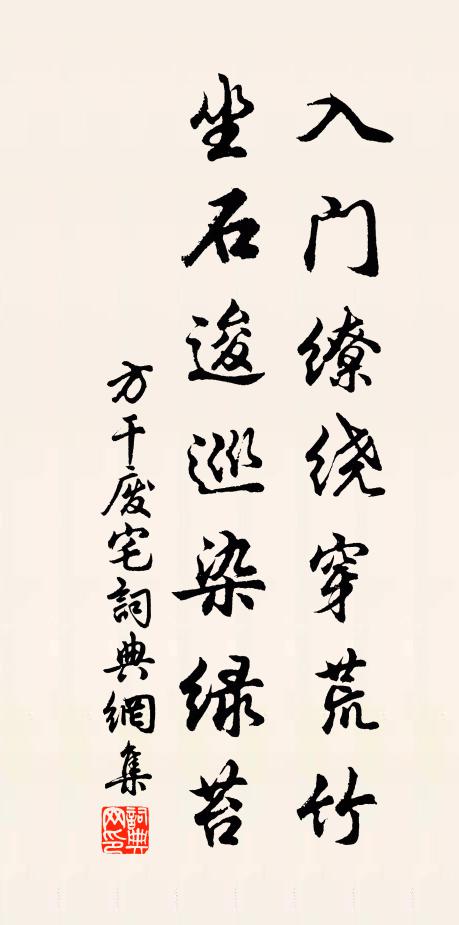 入门缭绕穿荒竹
坐石逡巡染绿苔
方干废宅詞典網集
詞典
网印